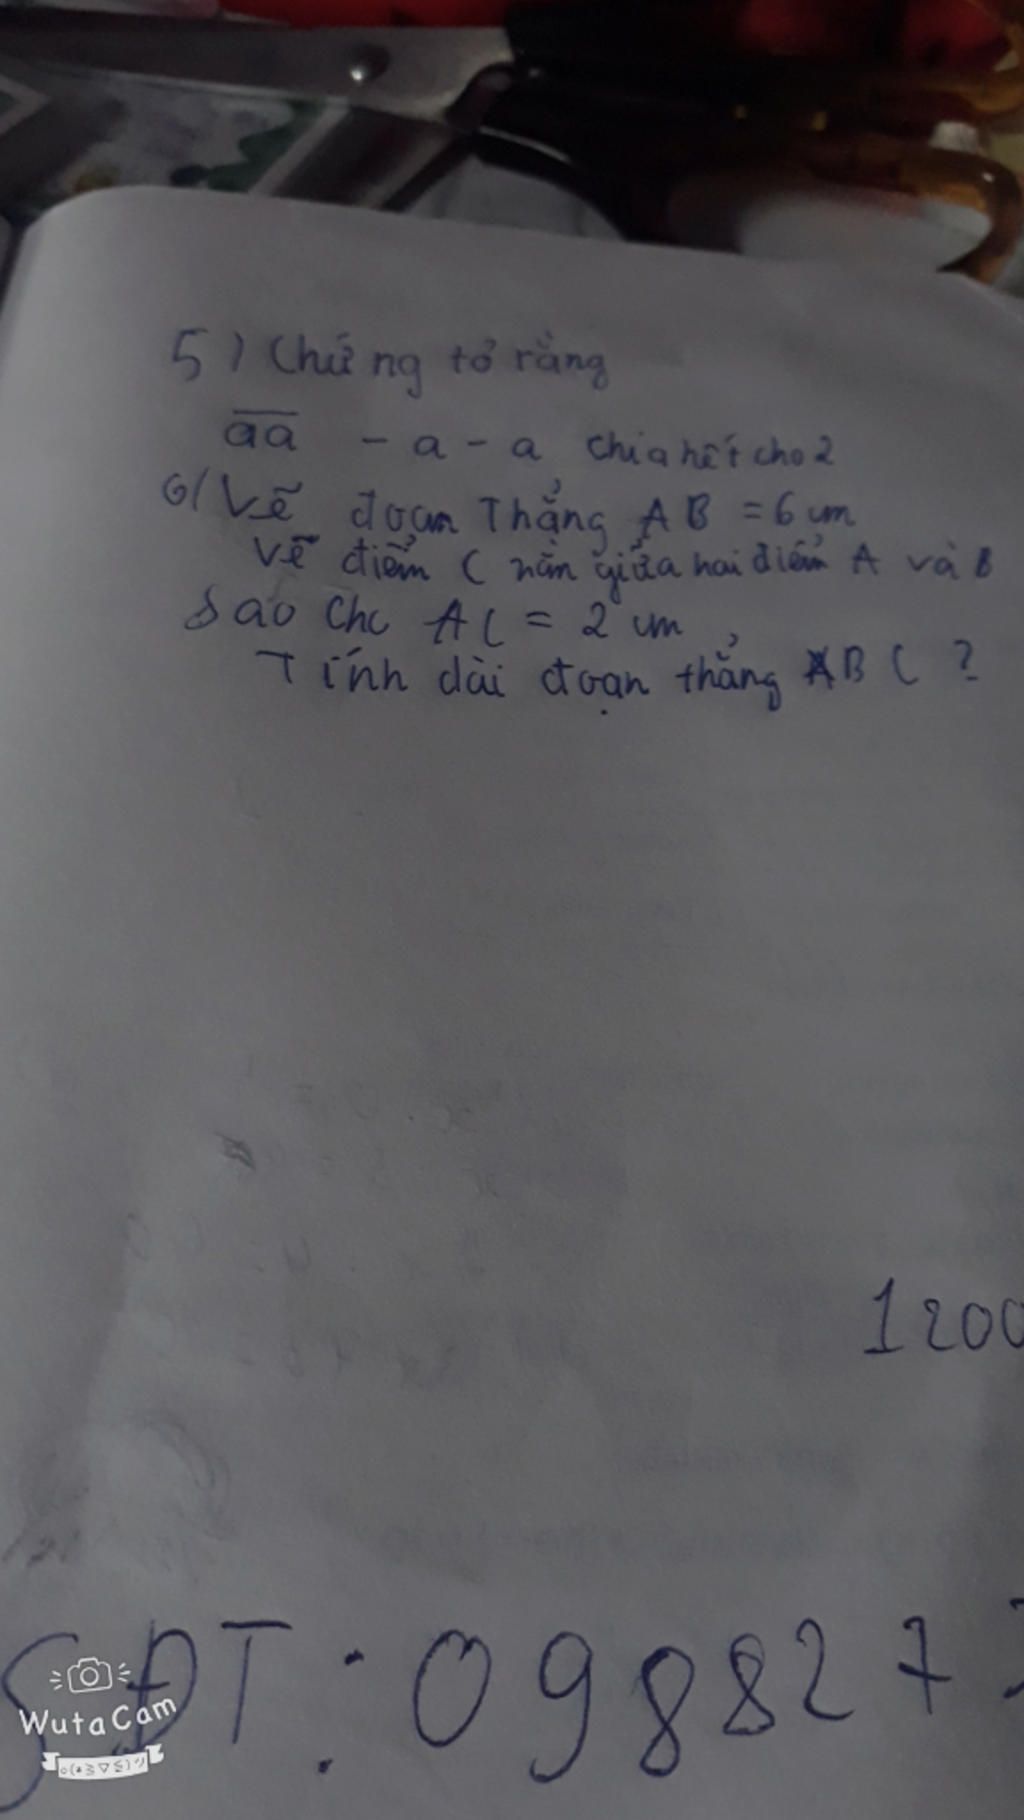 5) Chứng tỏ rằng
aa - a - a chia hết cho 2
6/ Vẽ đoạn Thẳng AB = 6 cm
Vẽ điểm C nằm giữa hai điểm A và B
Sao Cho AC = 2 cm
Tính dài đoạn thẳng BC ?
1200
SĐT: 098827
WutaCam